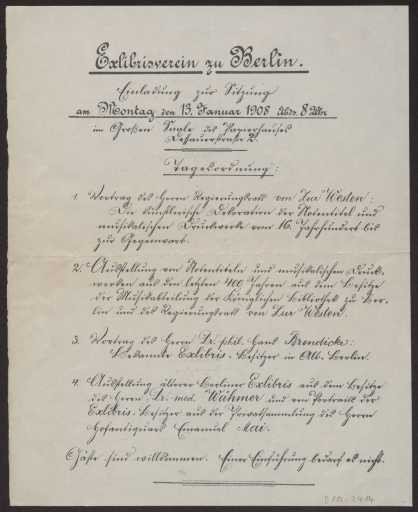 Exlibrisverein zu Berlin.
Einladung zur Sitzung
am Montag den 13. Januar 1908 Abds. 8 Uhr
im Großen Saale des Papierhauses
Dessauerstraße 2.
Tagesordnung:
1. Vortrag des Herrn Regierungsrath von Zur Westen:
Die künstlerische Dekoration der Notentitel und
musikalischen Druckwerke vom 16. Jahrhundert bis
zur Gegenwart.
2. Ausstellung von Notentiteln und musikalischen Druck-
werken aus den letzten 400 Jahren aus dem Besitze
der Musikabteilung der Königlichen Bibliothek zu Ber-
lin und des Regierungsrath von Zur Westen.
3. Vortrag des Herrn Dr. phil. Hans Brendicke:
Bekannte Exlibris-Besitzer in Alt-Berlin.
4. Ausstellung älterer Berliner Exlibris aus dem Besitze
des Herrn Dr. med. Wahmer und von Portraits der
Exlibris-Besitzer aus der Privatsammlung des Herrn
Hofantiquars Emanuel Mai.
Gäste sind willkommen. Einer Einführung bedarf es nicht.